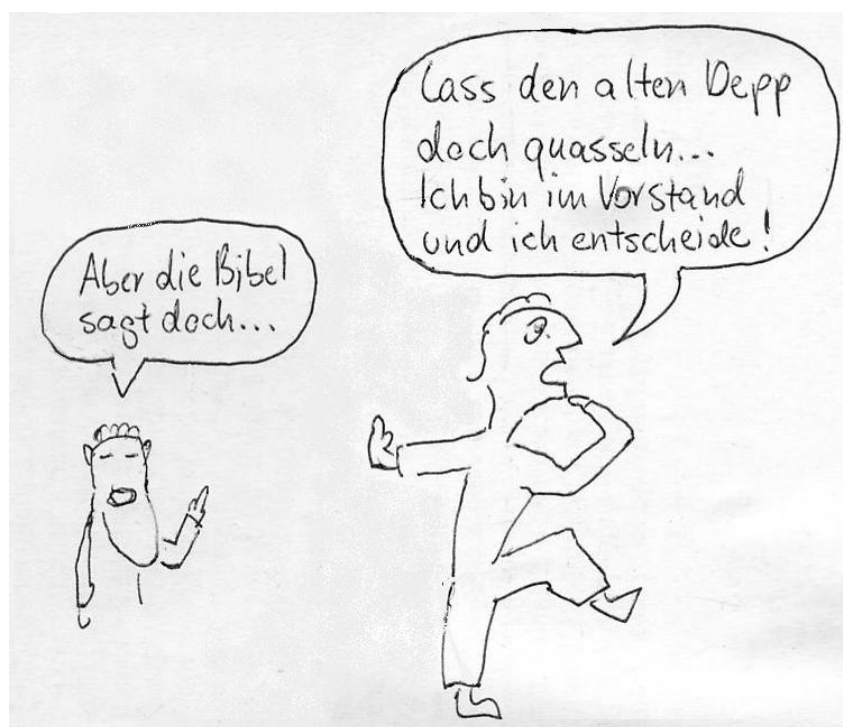 Aber die Bibel
sagt doch...
Lass den alten Depp
doch quasseln...
Ich bin im Vorstand
und ich entscheide!